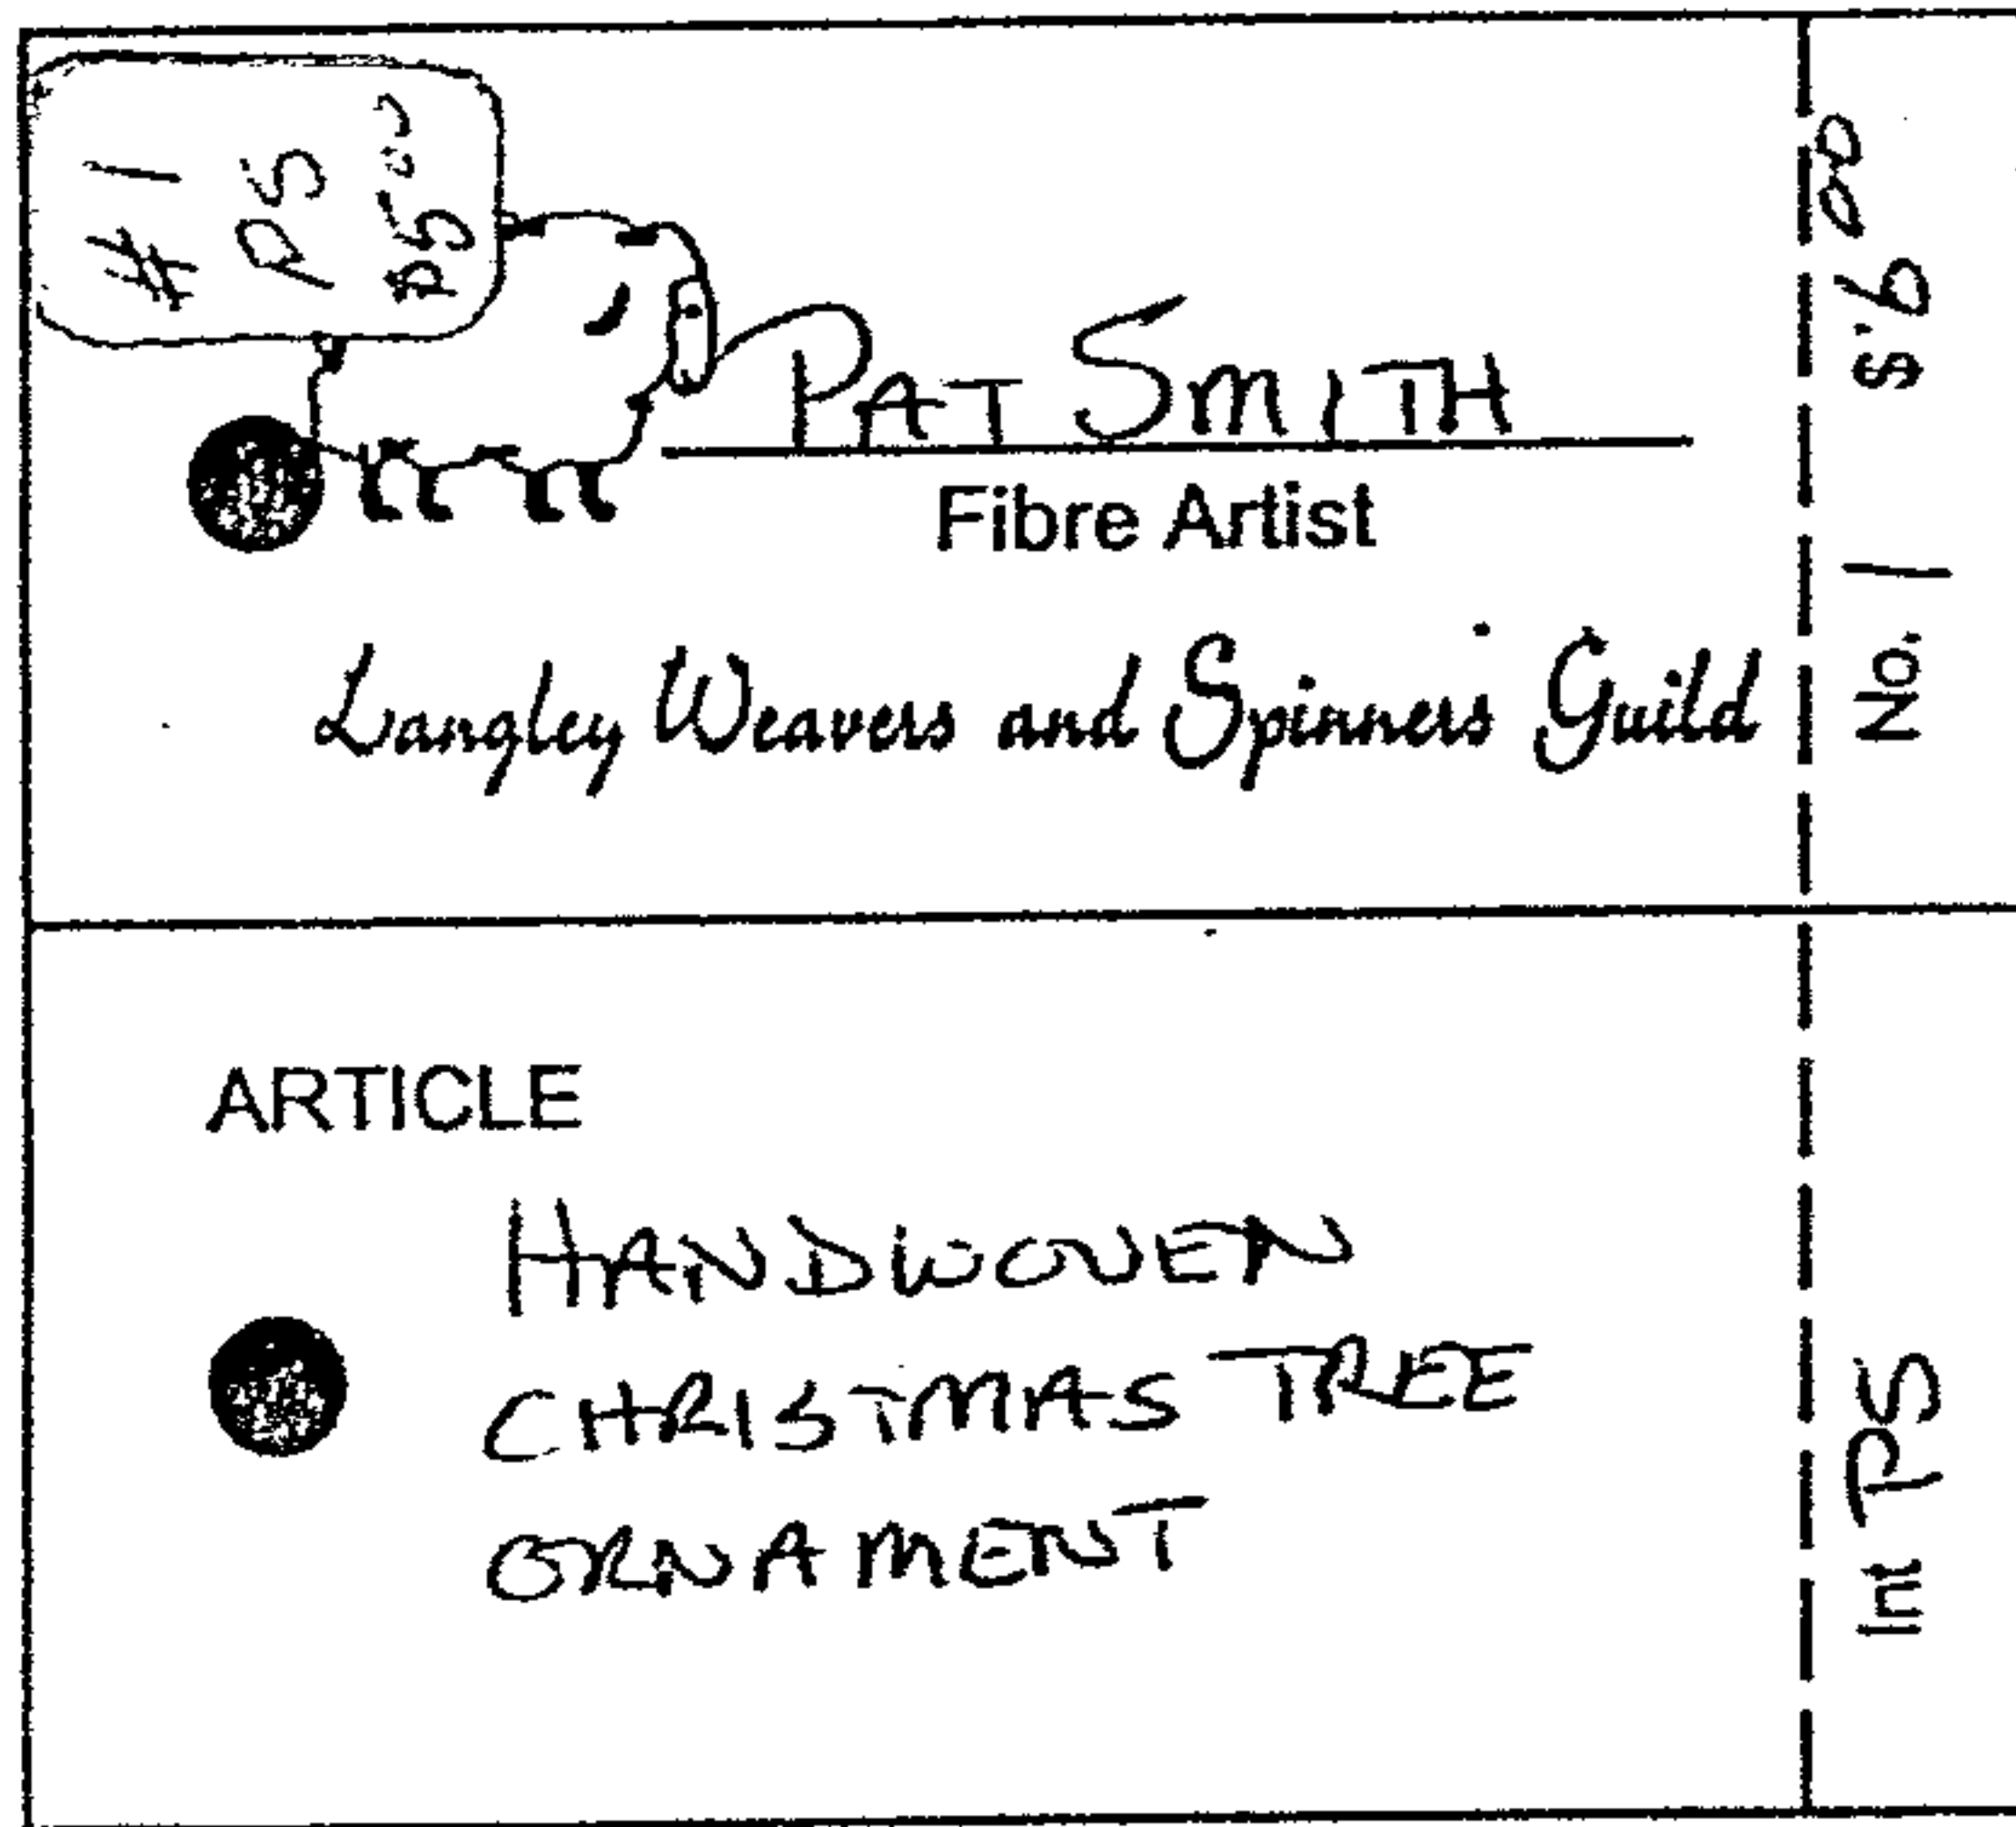 #1
PS
PAT SMITH
Fibre Artist
Langley Weavers and Spinners' Guild
No. 1
ARTICLE
HANDWOVEN
CHRISTMAS TREE
ORNAMENT
Int PS